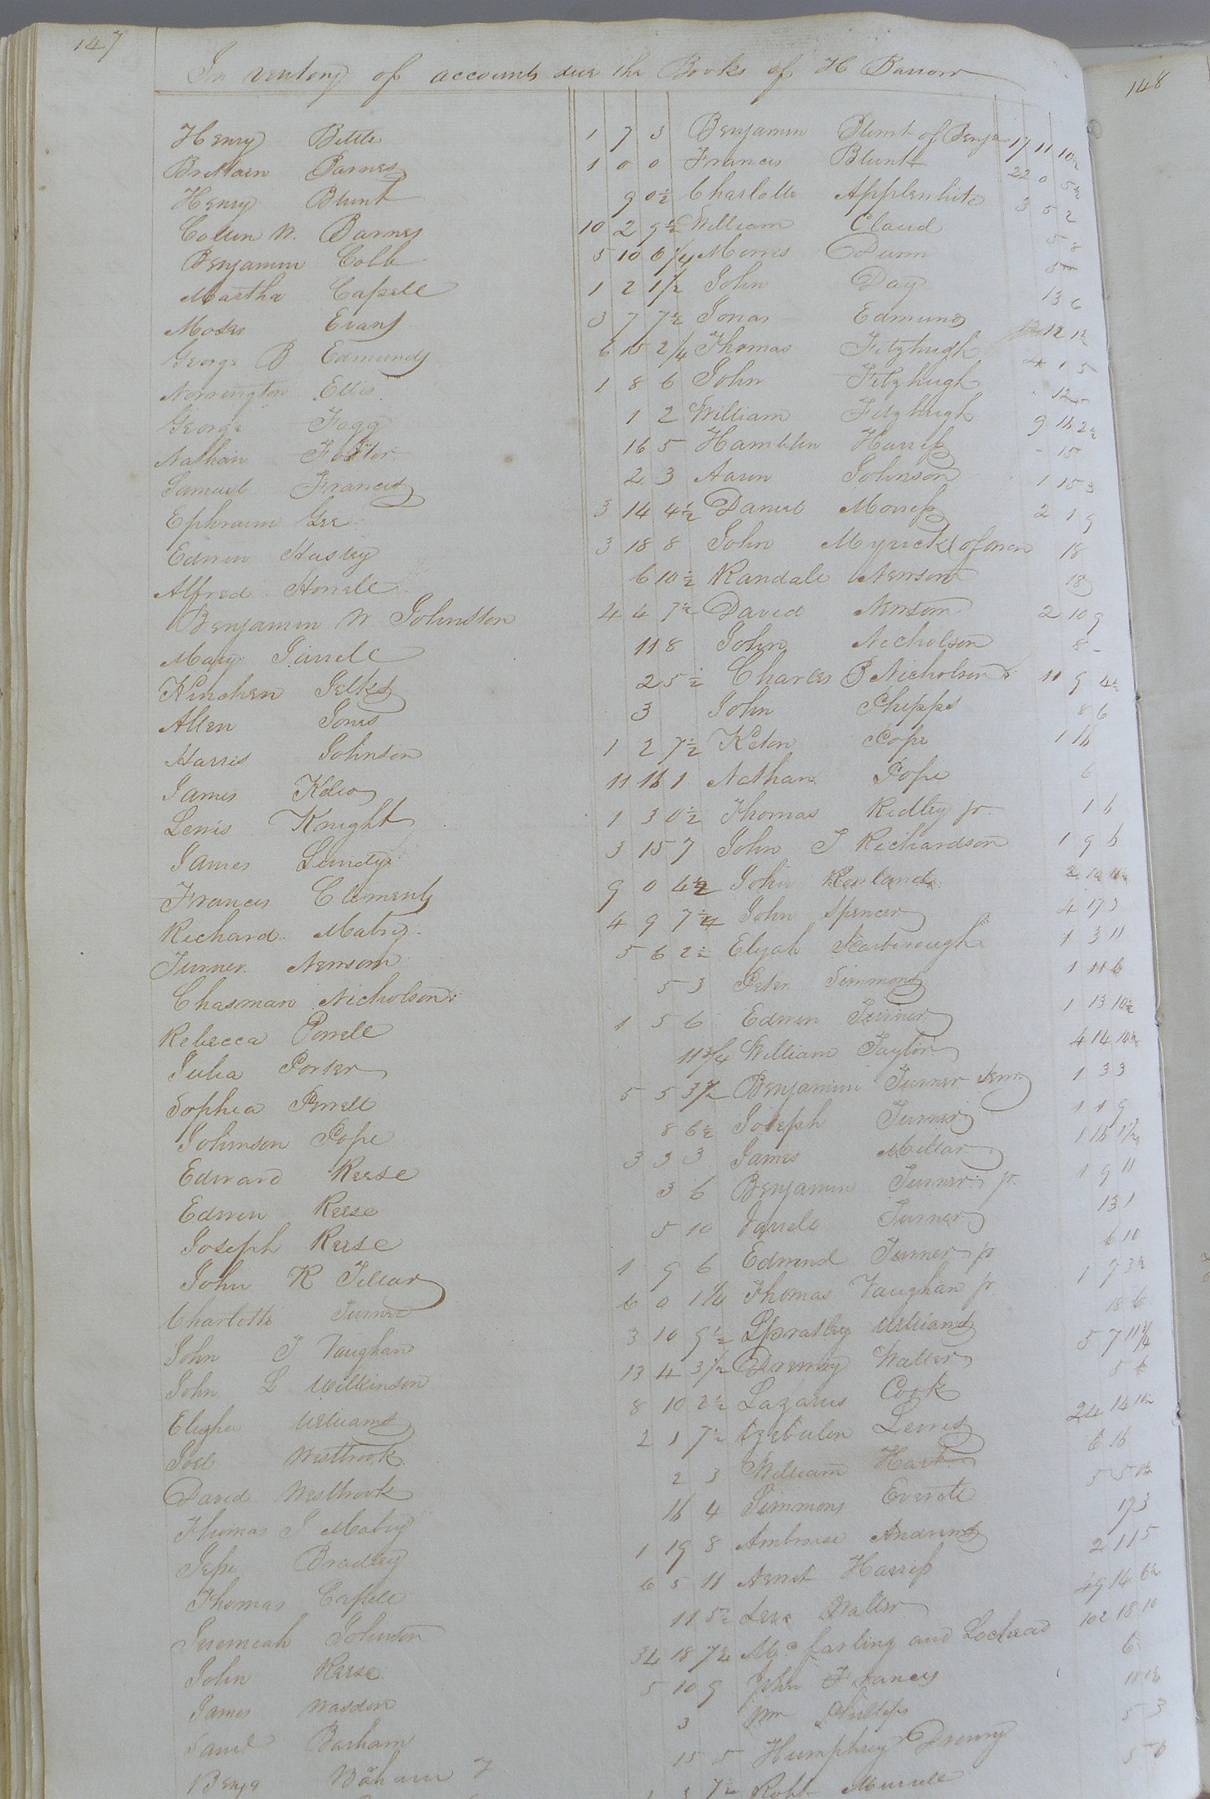 147
148
Inventory of accounts due the Books of H Barrow
Henry Bittle 1 7 3 Benjamin Blunt of Benja 17 11 10½
Brittain Barnes 1 0 0 Francis Blunt 22 0 5½
Henry Blunt 9 0½ Charlotte Applewhite 3 5 2
Collin W. Barnes 10 2 9½ William Claud 5 8
Benjamin Cobb 5 10 6¼ Morris Dunn
Martha Capell 1 2 1½ John Day 13 6
Moses Evans 3 7 7½ Jonas Edmunds 12 1½
George B Edmunds 6 15 2¼ Thomas Fitzhugh 4 1 5
Norrington Ellis 1 8 6 John Fitzhugh 12
George Fagg 1 2 William Fitzhugh 9 16 2½
Nathan Foster 16 5 Hamblin Harris 15
Samuel Francis 2 3 Aaron Johnson 1 15 3
Ephraim Gee 3 14 4½ Daniel Moriss 2 1 9
Edwin Husley 3 18 8 John Myrick of 18
Alfred Howell 6 10½ Randall Newsom 18
Benjamin W Johnston 4 4 7½ David Newsom 2 10 9
Mary Jarrell 11 8 John Nicholson 8
Kinchen Jelks 2 5½ Charles B Nicholson 11 9 4½
Allen Jones 3 John Phipps 8 6
Harris Johnson 1 2 7½ Keton Pope 1 16
James Kelso 11 16 1 Nathan Pope 6
Lewis Knight 1 3 0½ Thomas Ridley jr. 1 6
James Lundy 3 15 7 John J Richardson 1 9 6
Francis Clements 9 0 4½ John Rowland
Richard Mabry 4 9 7¼ John Spencer 4 17 3
Turner Newsom 5 6 2½ Elijah Scarborough 1 3 11
Chasman Nicholson 5 3 Peter Simmons 1 11 6
Rebecca Powell 1 5 6 Edwin Turner 1 13 10½
Julia Porter 11¾ William Taylor 4 14 10½
Sophia Powell 5 5 3½ Benjamin Turner Senr 1 3 3
Johnson Pope 8 6½ Joseph Turner 1 1 9
Edward Reese 3 3 3 James Millar 1 16 1½
Edwin Reese 3 6 Benjamin Turner jr. 1 9 11
Joseph Reese 5 10 Turner 13 1
John K Tillar 1 9 6 Edmund Turner jr 6 10
Charlotte Turner 6 0 1¼ Thomas Vaughan jr 1 7 3½
John T Vaughan 3 10 9½ Spratley Williams 18 6
John L Wilkinson 13 4 3½ Waller 5 7 11¼
Elisha Williams 8 10 2½ Lazarus Cook 5 6
Joel Westbrook 2 1 7½ Lewis 24 14 10½
David Westbrook 2 3 William Hart 6 16
Thomas J Mabry 16 4 Simmons Everitt 5 5
Jesse Bradley 1 19 8 Ambrose Andrews 17 3
Thomas Capell 6 5 11 Newit Harriss 2 11 5
Jeremiah Johnson 11 5½ Levi Waller 49 14 6½
John Reese 34 18 7½ Mc farling and Lochead 102 18 10
James Wasden 5 10 9 John Francis 6
Saml Barham 3 Wm Phillips
Benja Barham 15 5 Humphrey Drewry 5 3
7½ Robt Murrell 5 6